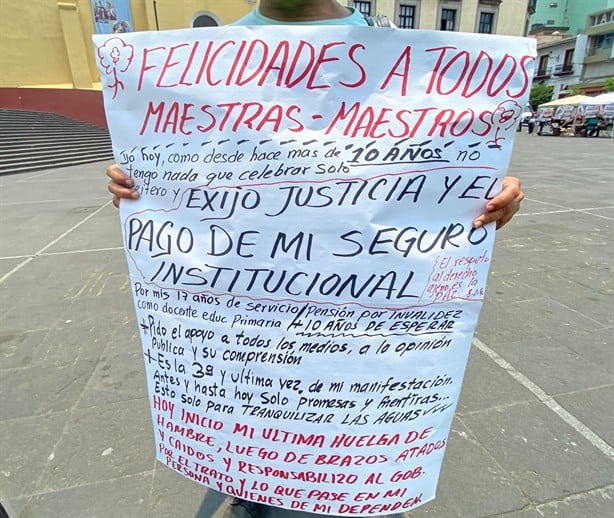 FELICIDADES A TODOS
MAESTRAS - MAESTROS
hoy, como desde hace mas de "10 AÑOS" no
tengo nada que celebrar solo
reitero y EXIJO JUSTICIA Y EL
PAGO DE MI SEGURO
INSTITUCIONAL
{El respeto
al derecho
ajeno es la
PAZ
Por mis 17 años de servicio/Pensión por INVALIDEZ
como docente educ Primaria /+ 10 AÑOS DE ESPERAR
+ Pido el apoyo a todos los medios, a la opinión
Publica y su comprensión
+ Es la 3ª y ultima vez, de mi manifestación.
Antes y hasta hoy Solo promesas y mentiras...
Esto solo para TRANQUILIZAR LAS AGUAS
HOY INICIO MI ULTIMA HUELGA DE
HAMBRE, LUEGO DE BRAZOS ATADOS
Y CAIDOS Y RESPONSABILIZO AL GOB.
POR EL TRATO Y LO QUE PASE EN MI
PERSONA Y QUIENES DE MI DEPENDEN.